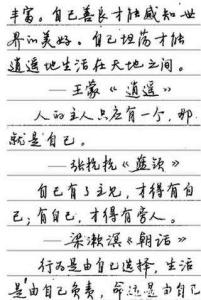 丰富。自己善良才能感知世
界的美好。自己坦荡才能
逍遥地生活在天地之间。
——王蒙《逍遥》
人的主人只应有一个，那
就是自己。
——张抗抗《蓝领》
自己有了主见，才得有自
己；有自己，才得有旁人。
——梁漱溟《朝话》
行为是由自己选择，生活
是由自己负责，命运是由自己